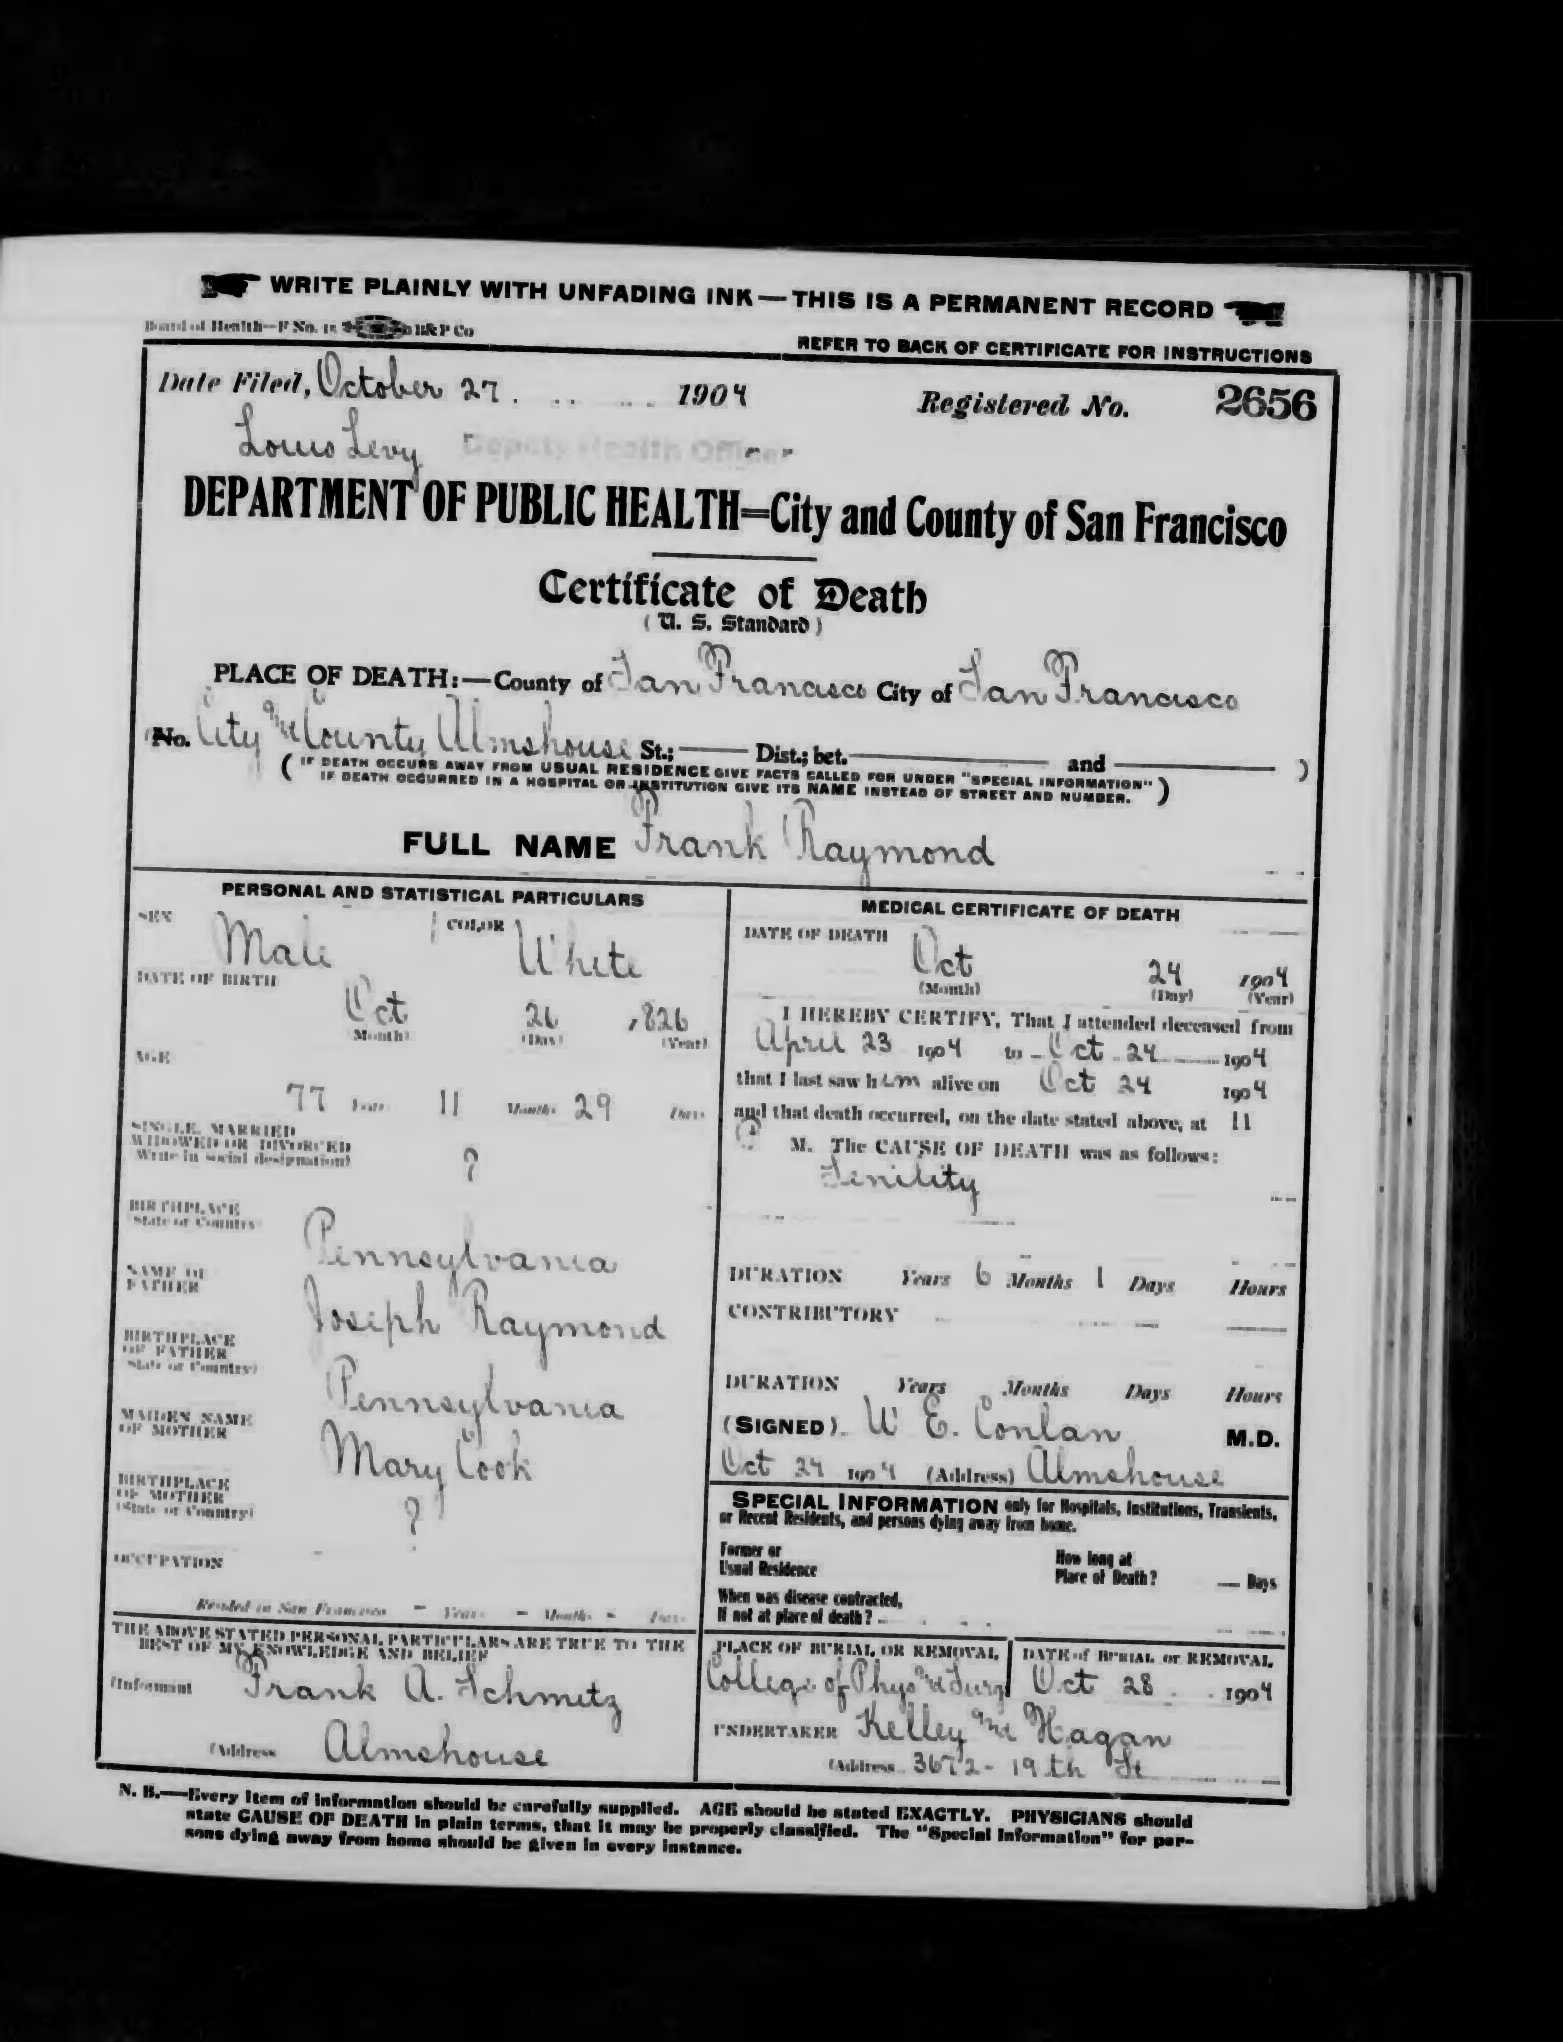 WRITE PLAINLY WITH UNFADING INK—THIS IS A PERMANENT RECORD
Board of Health—F No. 15 B&P Co
REFER TO BACK OF CERTIFICATE FOR INSTRUCTIONS
Date Filed, October 27. 1904 Registered No. 2656
Louis Levy Deputy Health Officer
DEPARTMENT OF PUBLIC HEALTH=City and County of San Francisco
Certificate of Death
(U. S. Standard)
PLACE OF DEATH:—County of San Francisco City of San Francisco
(No. City and County Almshouse St.; Dist.; bet. and )
(IF DEATH OCCURS AWAY FROM USUAL RESIDENCE GIVE FACTS CALLED FOR UNDER "SPECIAL INFORMATION"
IF DEATH OCCURRED IN A HOSPITAL OR INSTITUTION GIVE ITS NAME INSTEAD OF STREET AND NUMBER.)
FULL NAME Frank Raymond
PERSONAL AND STATISTICAL PARTICULARS
SEX Male COLOR White
DATE OF BIRTH
Oct 26 1826
(Month) (Day) (Year)
AGE
77 Years 11 Months 29 Days
SINGLE, MARRIED
WIDOWED OR DIVORCED
(Write in social designation) ?
BIRTHPLACE
(State or Country) Pennsylvania
NAME OF
FATHER Joseph Raymond
BIRTHPLACE
OF FATHER
(State or Country) Pennsylvania
MAIDEN NAME
OF MOTHER Mary Cook
BIRTHPLACE
OF MOTHER
(State or Country) ?
OCCUPATION
Resided in San Francisco - Years - Months - Days
THE ABOVE STATED PERSONAL PARTICULARS ARE TRUE TO THE
BEST OF MY KNOWLEDGE AND BELIEF
(Informant Frank A. Schmitz
(Address Almshouse
MEDICAL CERTIFICATE OF DEATH
DATE OF DEATH
Oct 24 1904
(Month) (Day) (Year)
I HEREBY CERTIFY, That I attended deceased from
April 23 1904 to Oct 24 1904
that I last saw him alive on Oct 24 1904
and that death occurred, on the date stated above, at 11
P M. The CAUSE OF DEATH was as follows:
Senility
DURATION Years 6 Months 1 Days Hours
CONTRIBUTORY
DURATION Years Months Days Hours
(SIGNED) W E. Conlan M.D.
Oct 24 1904 (Address) Almshouse
SPECIAL INFORMATION only for Hospitals, Institutions, Transients,
or Recent Residents, and persons dying away from home.
Former or
Usual Residence
How long at
Place of Death? — Days
When was disease contracted,
If not at place of death?
PLACE OF BURIAL OR REMOVAL
College of Phys and Surg
DATE of BURIAL or REMOVAL
Oct 28 1904
UNDERTAKER Kelley and Hagan
(Address 3672- 19th St
N. B.—Every item of information should be carefully supplied. AGE should be stated EXACTLY. PHYSICIANS should
state CAUSE OF DEATH in plain terms, that it may be properly classified. The "Special Information" for per-
sons dying away from home should be given in every instance.